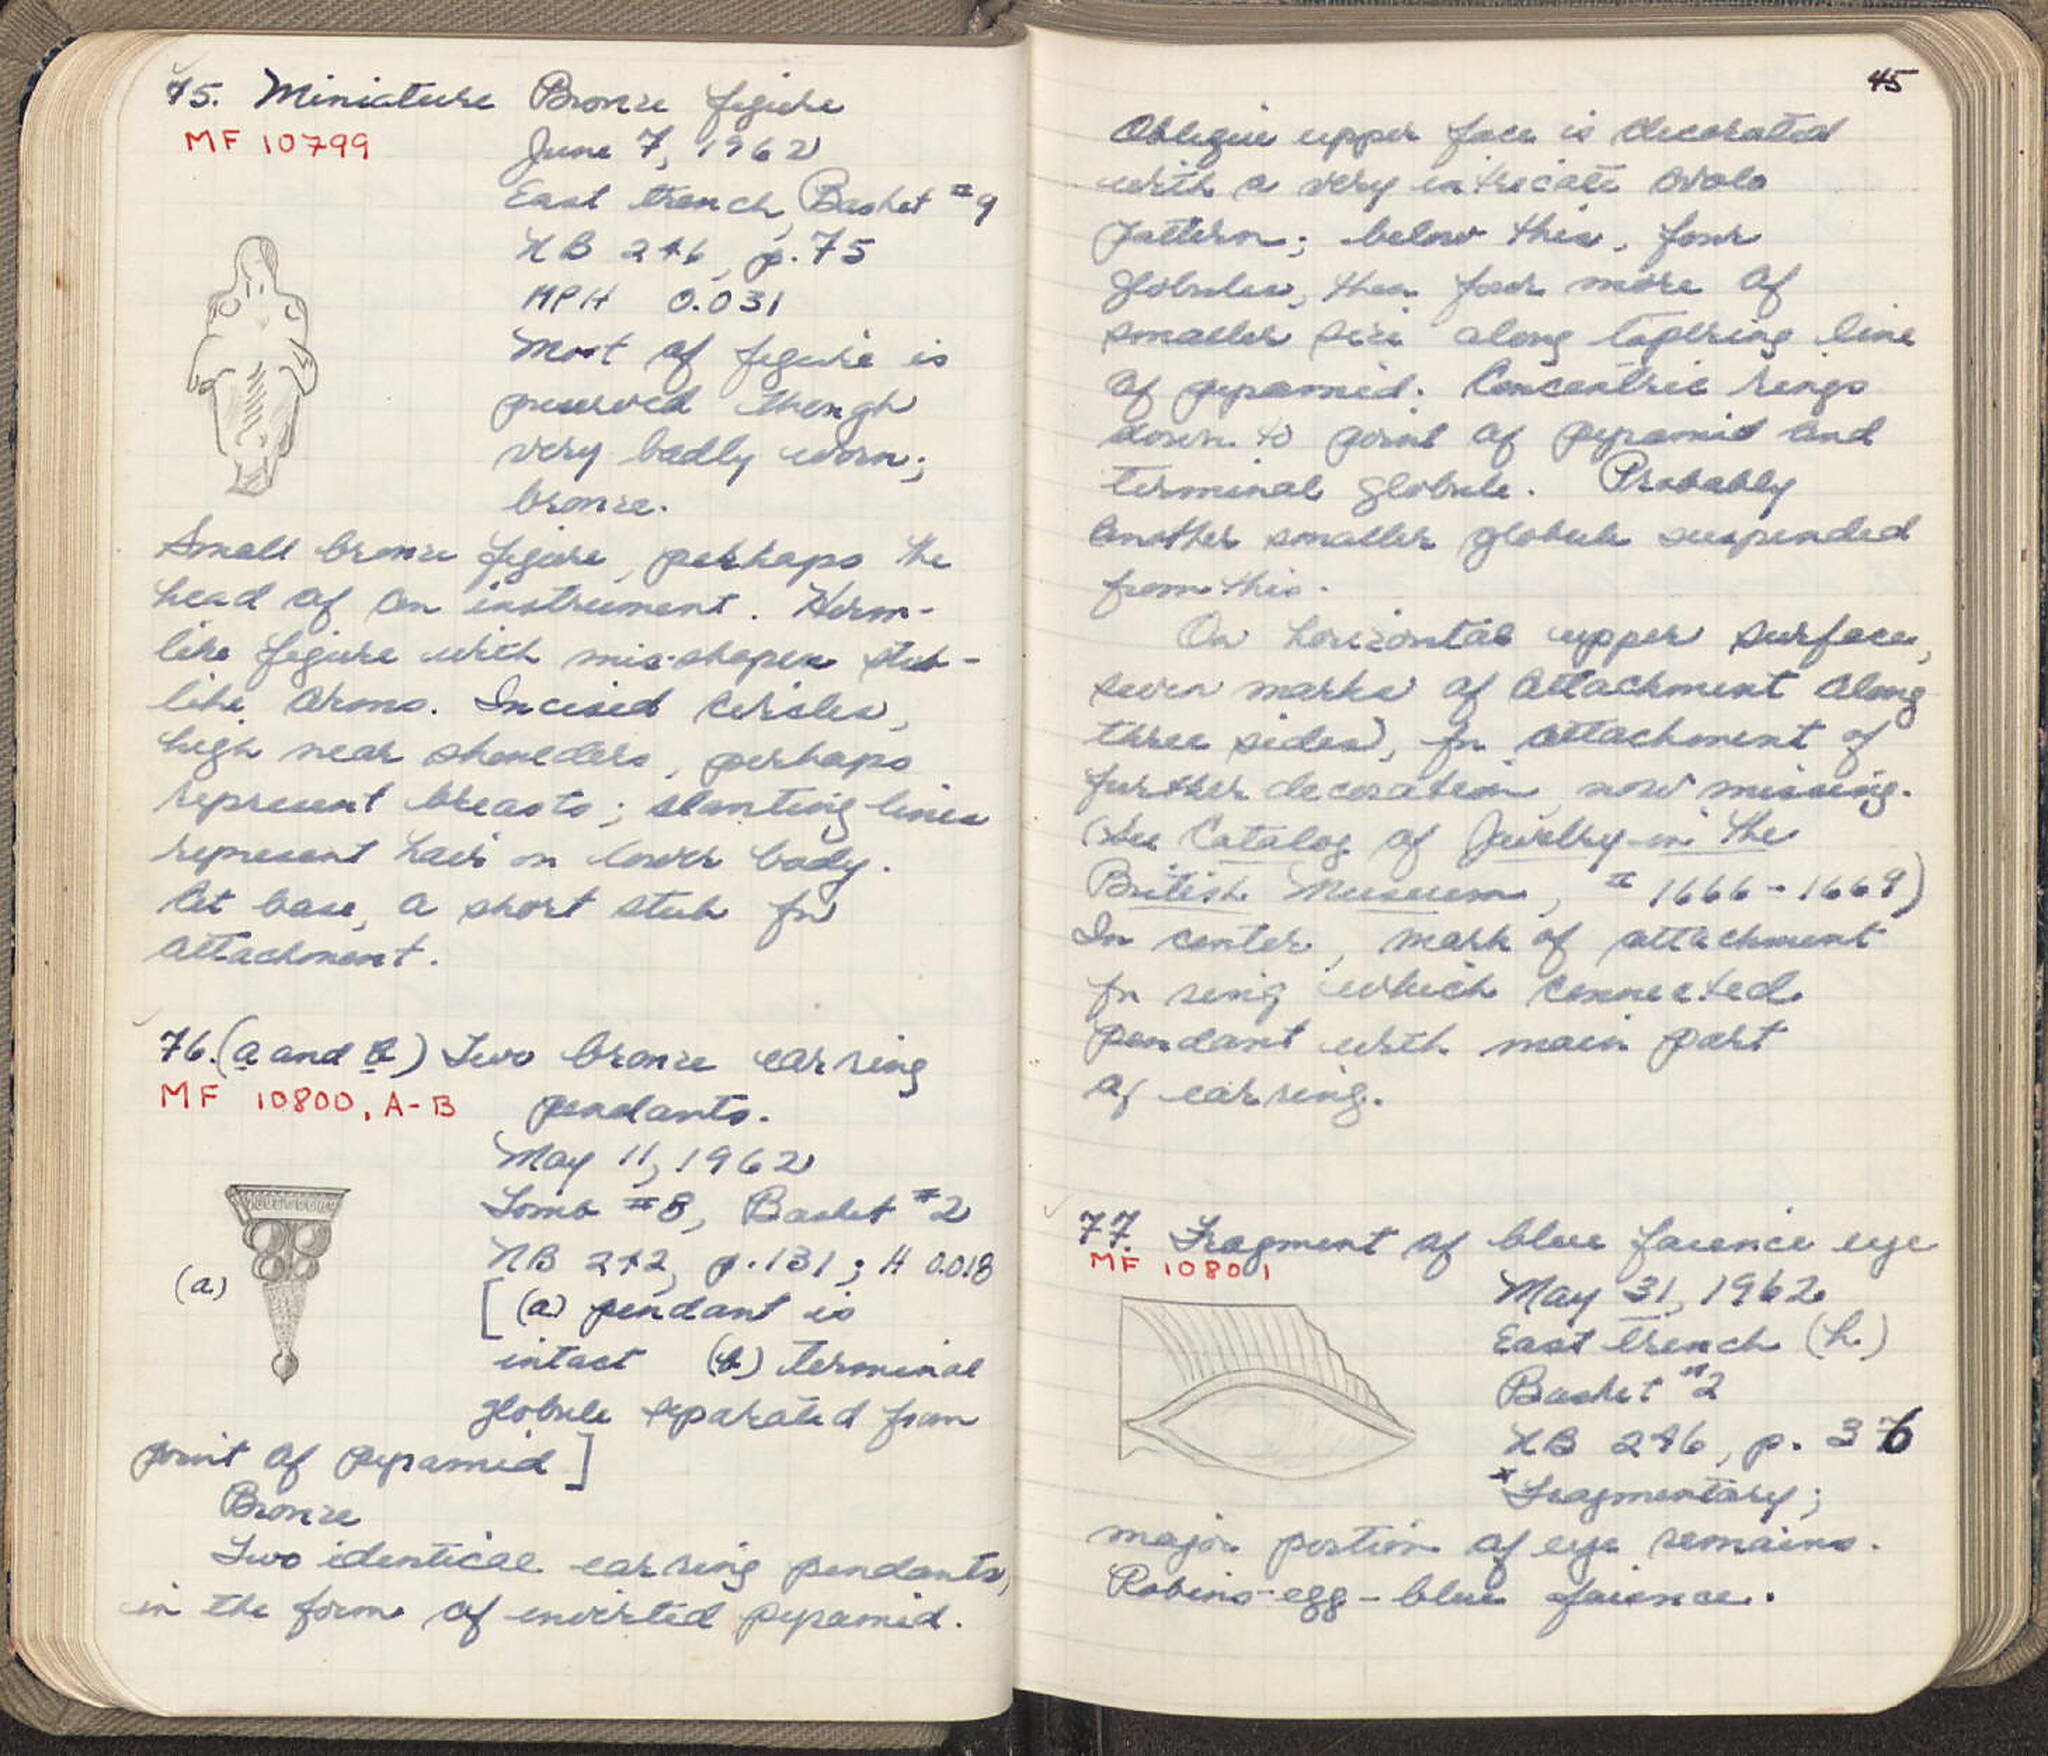 75. Miniature Bronze figure
MF 10799
June 7, 1962
East trench, Basket #9
NB 246, p. 75
MPH 0.031
Most of figure is
preserved though
very badly worn;
bronze.
Small bronze figure, perhaps the
head of an instrument. Herm-
like figure with mis-shapen stub-
like arms. Incised circles,
high near shoulders, perhaps
represent breasts; slanting lines
represent hair on lower body.
At base, a short stub for
attachment.
76. (a and b) Two bronze earring
MF 10800, A-B
pendants.
May 11, 1962
Tomb #8, Basket #2
NB 242, p. 131; H 0.018
(a)
[(a) pendant is
intact (b) terminal
globule separated from
point of pyramid]
Bronze
Two identical earring pendants,
in the form of inverted pyramid.
45
Oblique upper face is decorated
with a very intricate ovolo
pattern; below this, four
globules, then four more of
smaller size along tapering line
of pyramid. Concentric rings
down to point of pyramid and
terminal globule. Probably
another smaller globule suspended
from this.
On horizontal upper surface,
seven marks of attachment along
three sides, for attachment of
further decoration, now missing.
(See Catalog of Jewelry in the
British Museum, # 1666-1669)
In center, mark of attachment
for ring which connected
pendant with main part
of earring.
77. Fragment of blue faience eye
MF 10801
May 31, 1962
East trench (h.)
Basket #2
NB 246, p. 36
Fragmentary;
major portion of eye remains.
Robins-egg-blue faience.